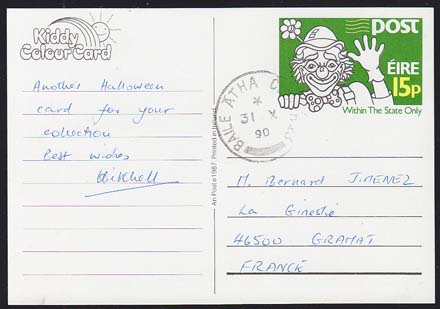 Kiddy
Colour Card
Another Halloween
card for your
collection
Best wishes
An Post © 1987. Printed in Ireland
POST
ÉIRE
15p
Within The State Only
BAILE ÁTHA C
31 X
90
M. Bernard JIMENEZ
La Ginestie
46500 GRAMAT
FRANCE